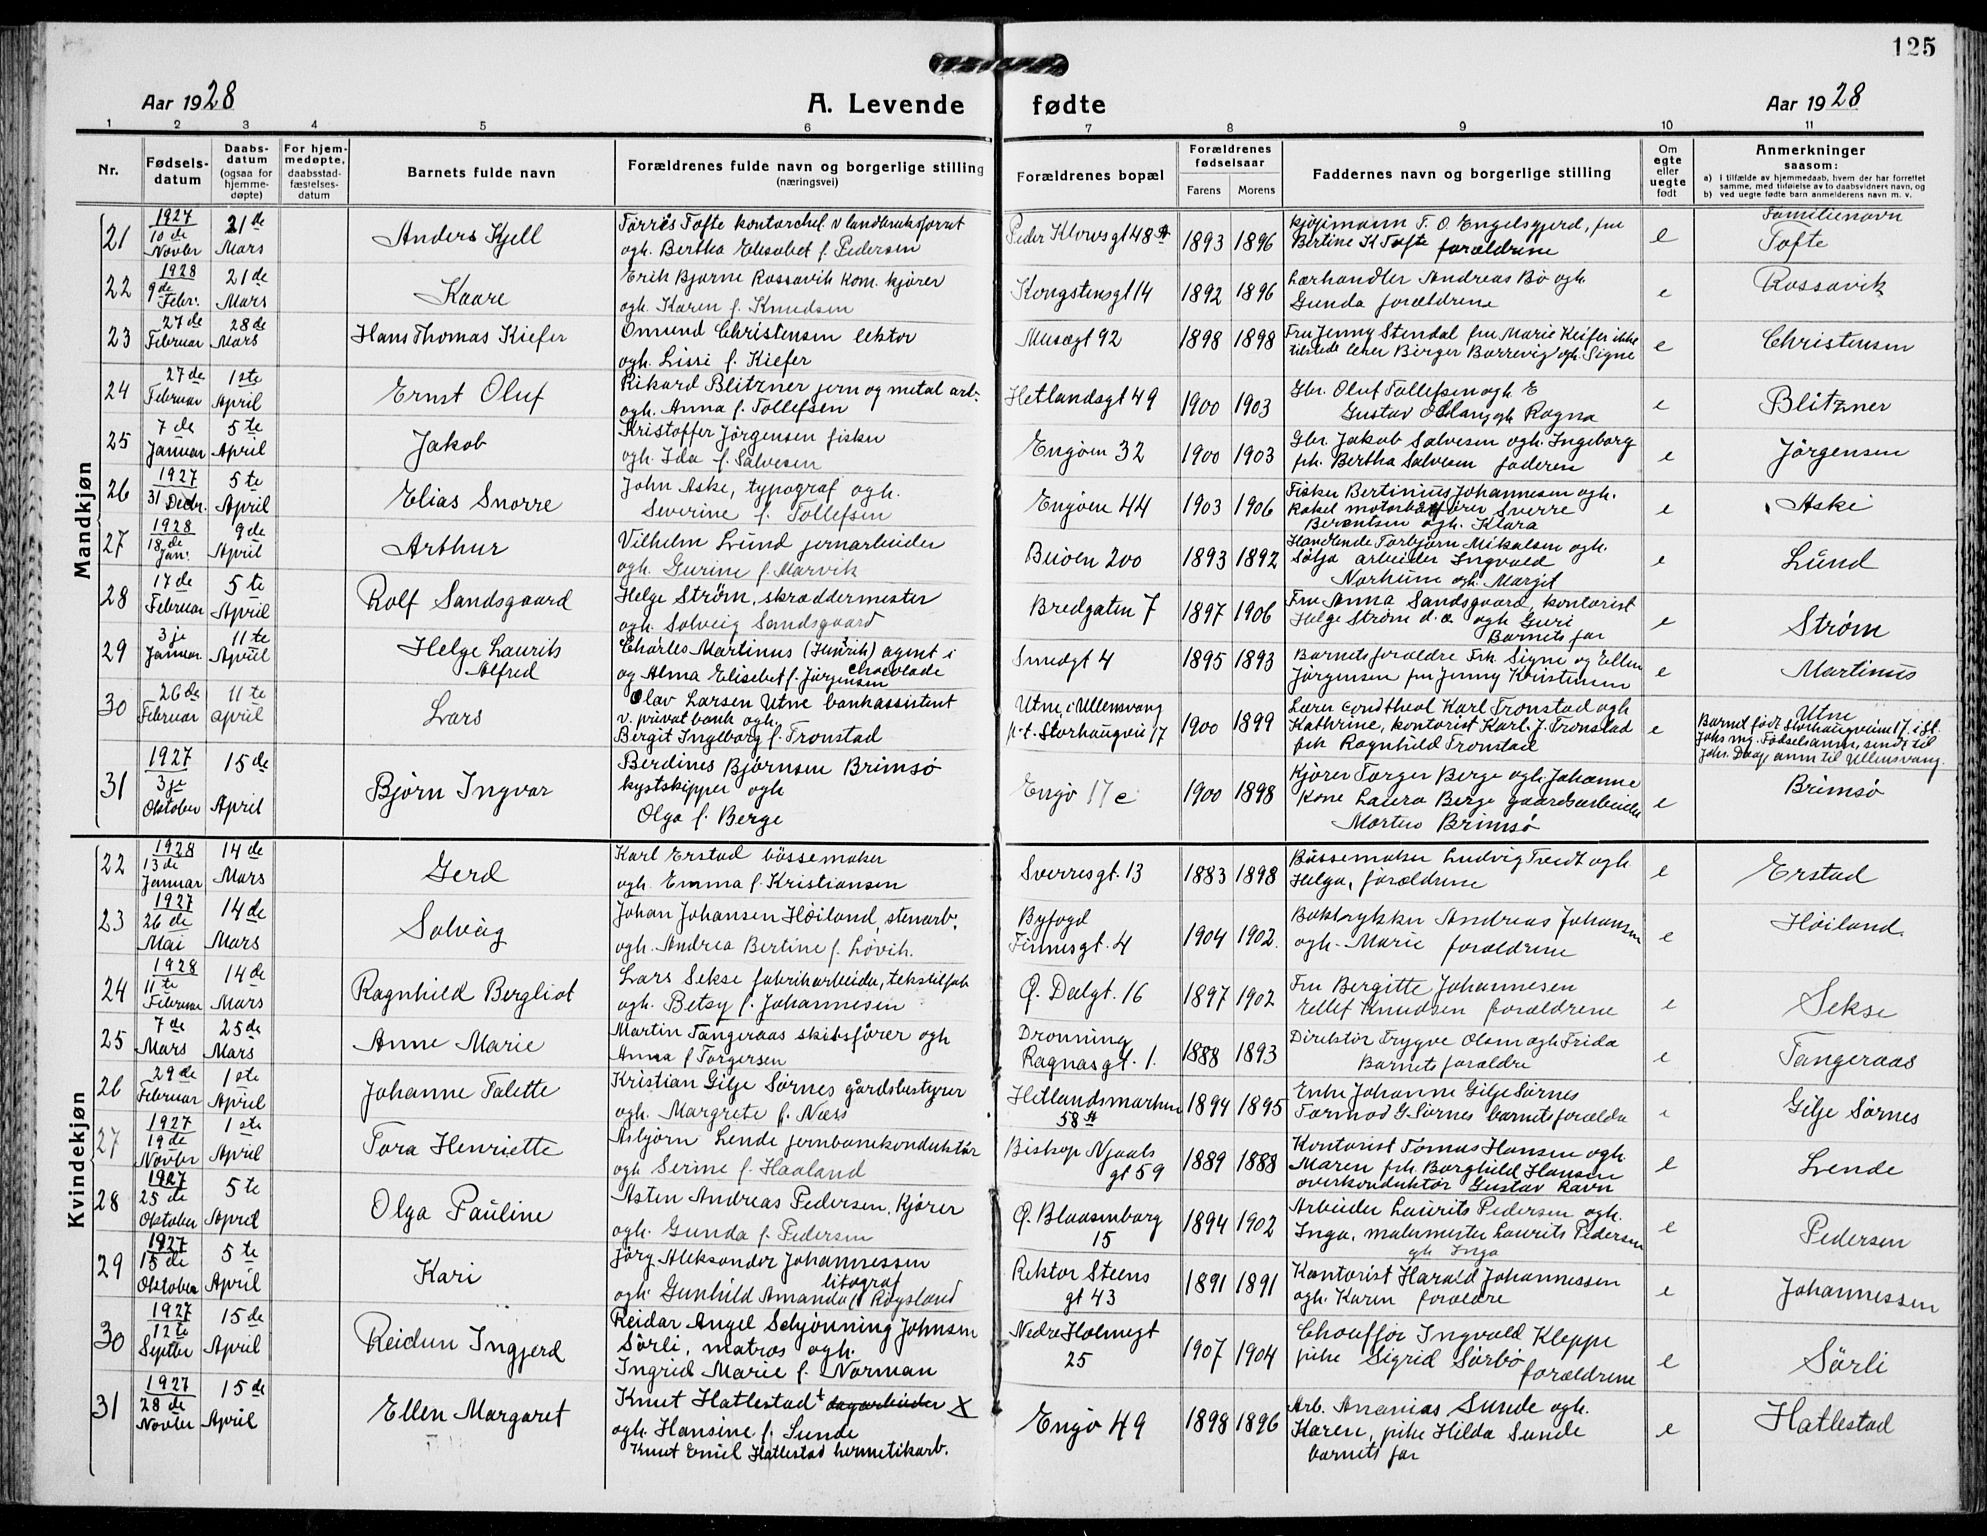 125
Aar 1928 A. Levende fødte Aar 1928
1 2 3 4 5 6 7 8 9 10 11
Nr. Fødsels-datum Daabs-datum (ogsaa for hjemme-døpte) For hjem-medøpte, daabsstad-fæstelses-datum Barnets fulde navn Forældrenes fulde navn og borgerlige stilling (næringsvei) Forældrenes bopæl Forældrenes fødselsaar Farens Morens Faddernes navn og borgerlige stilling Om egte eller uegte født Anmerkninger saasom:
a) I tilfælde av hjemmedaab, hvem der har forrettet samme, med tilføielse av to daabsvidners navn, og
b) ved uegte født barn anmelderens navn m. v.
Mandkjøn
21 1927 10de Novbr 21de Mars Anders Kjell Tørres Tofte kontorchef v landbruksforret
ogh. Bertha Elisabet f. Pedersen
Peder Klowsgt 48 A 1893 1896 kjøpmann T. O. Engelsgjerd, fru
Bertine K Tofte forældrene e Familienavn
Tofte
22 1928 9de Febr. 21de Mars Kaare Erik Bjarne Rossavik kom. kjører
ogh. Karen f. Knudsen
Kongstensgt 14 1892 1896 Lærhandler Andreas Bø ogh.
Gunda forældrene e Rossavik
23 27de Februar 28de Mars Hans Thomas Kiefer Omund Christensen lektor
ogh. Lissi f. Kiefer
Musægt 92 1898 1898 Fru Jenny Stendal fru Marie Keifer ikke
tilstede lærer Birger Barrevig ogh. Signe e Christensen
24 27de Februar 1ste April Ernst Oluf Rikard Blitzner jern og metal arb.
ogh. Anna f. Tollefsen
Hetlandsgt 49 1900 1903 Gbr. Oluf Tollefsen ogh. E
Gustav ogh Ragna e Blitzner
25 7de Januar 5te April Jakob Kristoffer Jörgensen fisker
ogh. Ida f. Salvesen
Engøen 32 1900 1903 Gbr. Jakob Salvesen ogh. Ingeborg
frk. Bertha Salvesen faderen e Jörgensen
26 1927 31 Decbr. 5te April Elias Snorre John Aske, typograf ogh.
Severine f. Tollefsen
Engøen 44 1903 1906 Fisker Bertinius Johannesen ogh.
Rakel Sverre
Berentsen ogh. Klara e Aske
27 1928 18de Jan. 9de April Arthur Vilhelm Lund jernarbeider
ogh. Gurine f. Marvik
Buøen 200 1893 1892 Handlende Torbjørn Mikalsen ogh.
Sølja arbeider Ingvald
Norheim ogh. Margit e Lund
28 17de Februar 5te April Rolf Sandsgaard Helge Strøm, skræddermester
ogh. Solveig Sandsgaard
Bredgaten 7 1897 1906 Fru Anna Sandsgaard, kontorist
Helge Strøm d.e. ogh Guri
Barnets far e Strøm
29 3je Januar 11te April Helge Laurits
Alfred Charles Martinus (Henrik) agent i
chocolade
og Alma Elisebet f. Jørgensen
Smedgt 4 1895 1893 Barnets forældre Frk Signe og Ellen
Jørgensen fru Jenny Kristensen e Martinus
30 26de Februar 11te april Lars Olav Larsen Utne bankassistent
v. privat bank ogh.
Bergit Ingleborg f. Tronstad
Utne i Ullensvang
p.t. Storhaugvei 17 1900 1899 Lærer cand theol Karl Tronstad ogh
Kathrine, kontorist Karl J. Tronstad
frk Ragnhild Tronstad e Utne
Barnet født Storhaugveien 17 i St.
Johs mg. Fødselsanm. sendt til
Johs. Daap anm til Ullensvang.
31 1927 3je Oktober 15de April Bjørn Ingvar Berdines Bjørnsen Brimsø
kystskipper ogh
Olga f. Berge
Engø 17c 1900 1898 Kjører Torger Berge ogh. Johanne
Kone Laura Berge gaardsarbeider
Martin Brimsø e Brimsø
Kvindekjøn
22 1928 13de Januar 14de Mars Gerd Karl Erstad bössemaker
ogh. Emma f. Kristiansen
Sverresgt. 13 1883 1898 Bössemaker Ludvig Tredt ogh
Helga, forældrene e Erstad
23 1927 26de Mai 14de Mars Solveig Johan Johansen Høiland, stenarb.
ogh. Andrea Bertine f. Løvik.
Byfogd
Finnesgt. 4 1904 1902. Boktrykker Andreas Johansen
ogh. Marie forældrene e Høiland.
24 1928 11te Februar 14de Mars Ragnhild Bergliot Lars Sekse fabrikarbeider, tekstilfab
ogh. Betsy f. Johannesen
Ø. Dalgt. 16 1897 1902 Fru Bergitte Johannesen
Ellef Knudsen forældrene e Sekse
25 7de Mars 25de Mars Anne Marie Martin Tangeraas skibsfører ogh
Anna f Torgersen
Dronning
Ragnasgt. 1. 1888 1893 Direktør Trygve Olsen ogh Frida
Barnets forældre e Tangeraas
26 29de Februar 1ste April Johanne Talette Kristian Gilje Sørnes gårdsbestyrer
ogh. Margrete f. Næss
Hetlandsmarken
58 A 1894 1895 Enke Johanne Gilje Sørnes
Tormod G Sørnes barnets foreldre e Gilje Sørnes
27 1927 19de Novbr 1ste April Tora Henriette Asbjørn Lende jernbanekonduktør
ogh Serine f. Haaland
Bishop Njaals
gt 59 1889 1888 Kontorist Tomas Hansen ogh.
Maren frk. Borghild Hansen
overkonduktør Gustav Ravn e Lende
28 1927 25de Oktober 5te April Olga Pauline Asten Andreas Pedersen, Kjører
ogh. Gunda f. Pedersen
Ø. Blaasenborg
15 1894 1902 Arbeider Laurits Pedersen ogh.
Inga, malermester Laurits Pedersen
gh Inga e Pedersen
29 1927 15de Oktober 5te April Kari Jörg Aleksander Johannessen
litograf
ogh. Gunhild Amanda f. Røysland
Rektor Steens
gt 43 1891 1891 Kontorist Harald Johannessen
ogh. Karen foreldre e Johannessen
30 1927 12te Septbr 15de April Reidun Ingjerd Reidar Angel Schjønning Johnsen
Sörli, matros ogh.
Ingrid Marie f. Norman
Nedre Holmegt
25 1907 1904 Chauffør Ingvald Kleppe
pike Sigrid Sørbø
forældrene e Sörli
31 1927 28de Novbr 15de April Ellen Margaret Knut Hatlestad dagarbeider X
ogh. Hansine f. Sunde
Knut Emil Hatlestad hermetikarb.
Engø 49 1898 1896 Arb. Ananias Sunde ogh.
Karen, pike Hilda Sunde
barnets far e Hatlestad